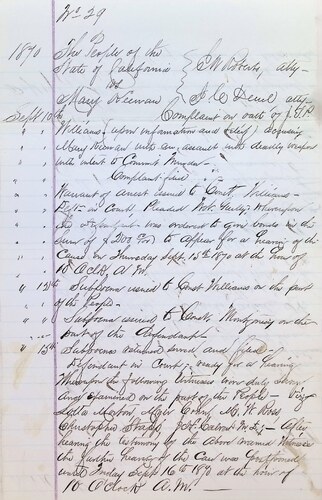 No 29
1870 The People of the
State of California } S W Roberts, atty
vs
Mary Kiernan } J. C. Deuel atty
Sept 10th Complaint on oath of J. F.
Williams (upon information and belief) accusing
Mary Kiernan with an assault with deadly weapon
with intent to Commit Murder
" " Complaint filed
" " Warrant of arrest issued to Const. Williams
" " Deft in Court, Pleaded Not Guilty Whereupon
The Defendant was ordered to give bonds in the
Sum of $500 to appear for a hearing of the
Cause on Thursday Sept. 15th 1870 at the hour of
10 Oclk A. M.
" 13th Subpoena issued to Const Williams on the part
of the People
" " Subpoena issued to Const. Montgomery on the
part of the Defendant
" 15th Subpoenas returned served and filed
Defendant in Court, ready for a hearing
Whereupon the following Witnesses were duly Sworn
and Examined on the part of the People - Viz
Mayer Cohn, M. W. Ross
Christopher M. D.; After
hearing the testimony of the above named Witnesses
the further hearing of the Case was postponed
until Friday Sept 16th 1870 at the hour of
10 Oclock A. M.